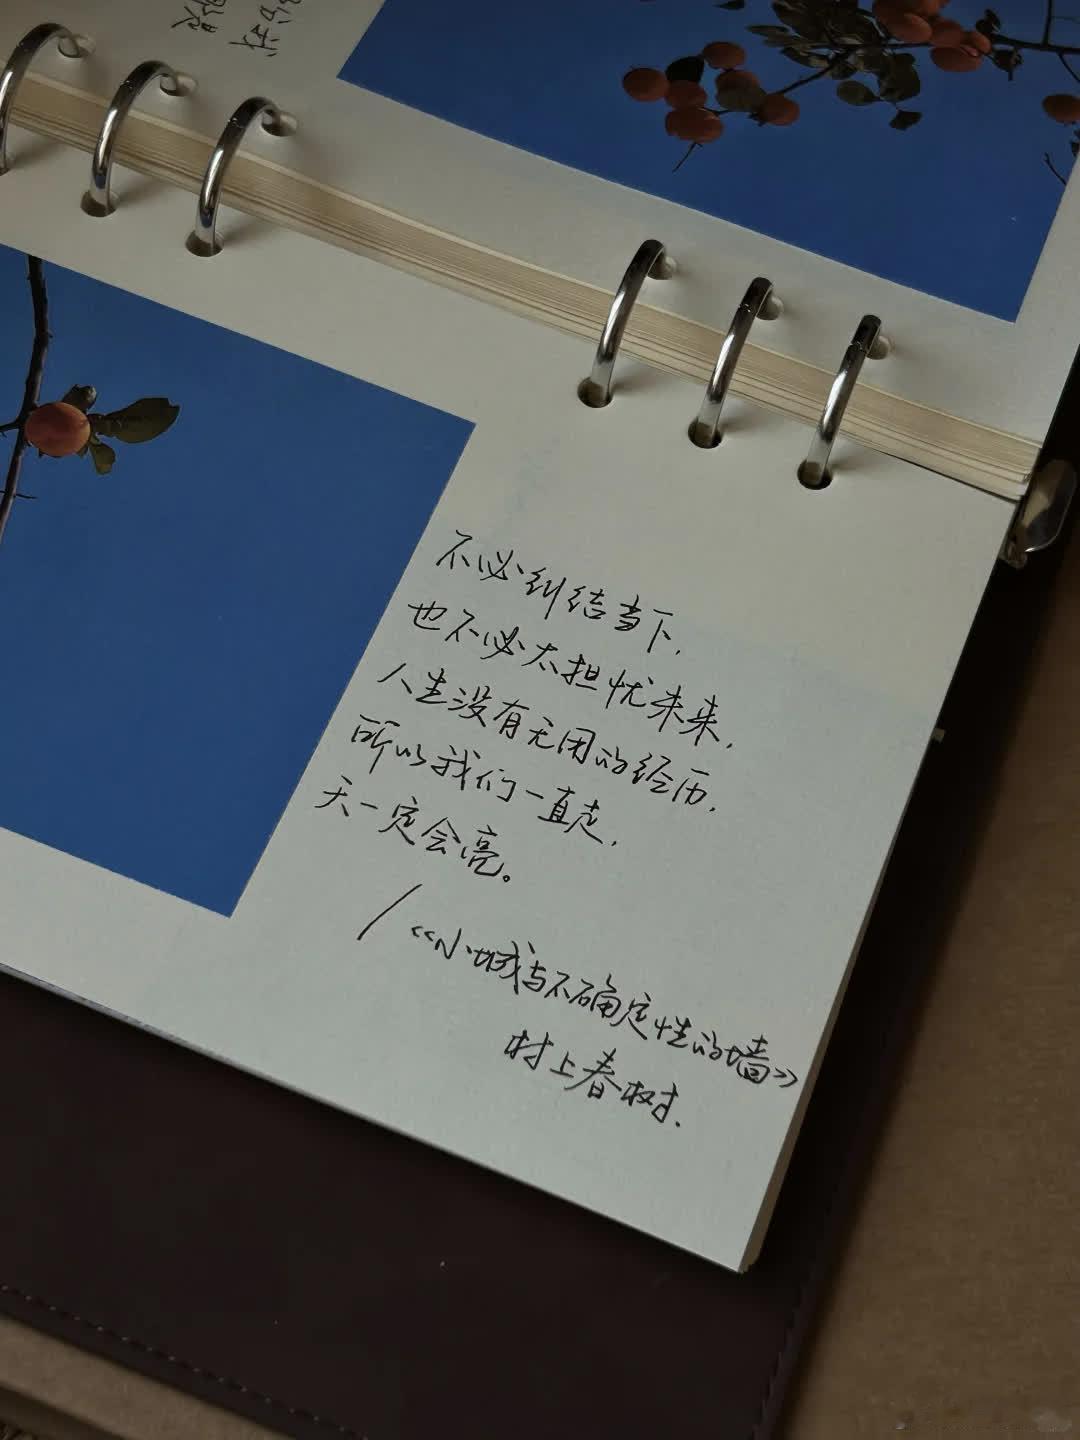 不必纠结当下,
也不必太担忧未来,
人生没有无用的经历,
所以我们一直走,
天一定会亮。
/《小城与不确定性的墙》
村上春树.